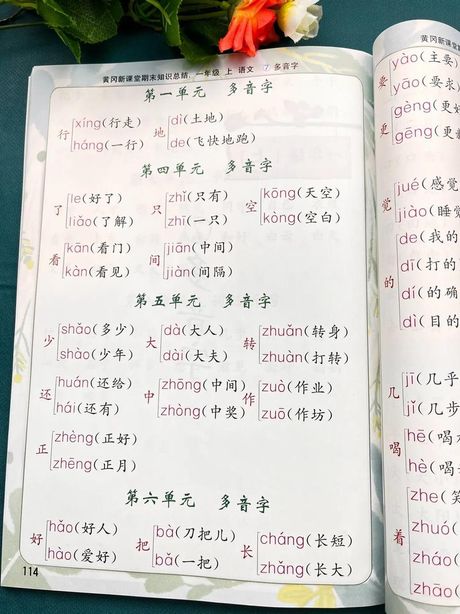 黄冈新课堂期末知识总结. 一年级 上 语文 ⑦ 多音字
第一单元 多音字
行 xíng(行走) háng(一行) 地 dì(土地) de(飞快地跑)
第四单元 多音字
了 le(好了) liǎo(了解) 只 zhǐ(只有) zhī(一只) 空 kōng(天空) kòng(空白)
看 kān(看门) kàn(看见) 间 jiān(中间) jiàn(间隔)
第五单元 多音字
少 shǎo(多少) shào(少年) 大 dà(大人) dài(大夫) 转 zhuǎn(转身) zhuàn(打转)
还 huán(还给) hái(还有) 中 zhōng(中间) zhòng(中奖) 作 zuò(作业) zuō(作坊)
正 zhèng(正好) zhēng(正月)
第六单元 多音字
好 hǎo(好人) hào(爱好) 把 bà(刀把儿) bǎ(一把) 长 cháng(长短) zhǎng(长大)
114
黄冈新课堂期末知
要 yào(主要) yāo(要求)
更 gèng(更好 gēng(更
觉 jué(感觉 jiào(睡觉
的 de(我的 dī(打的 dí(的确 dì(目的
几 jī(几乎 jǐ(几步
喝 hē(喝 hè(喝
着 zhe(笑 zhuó( zháo( zhāo(